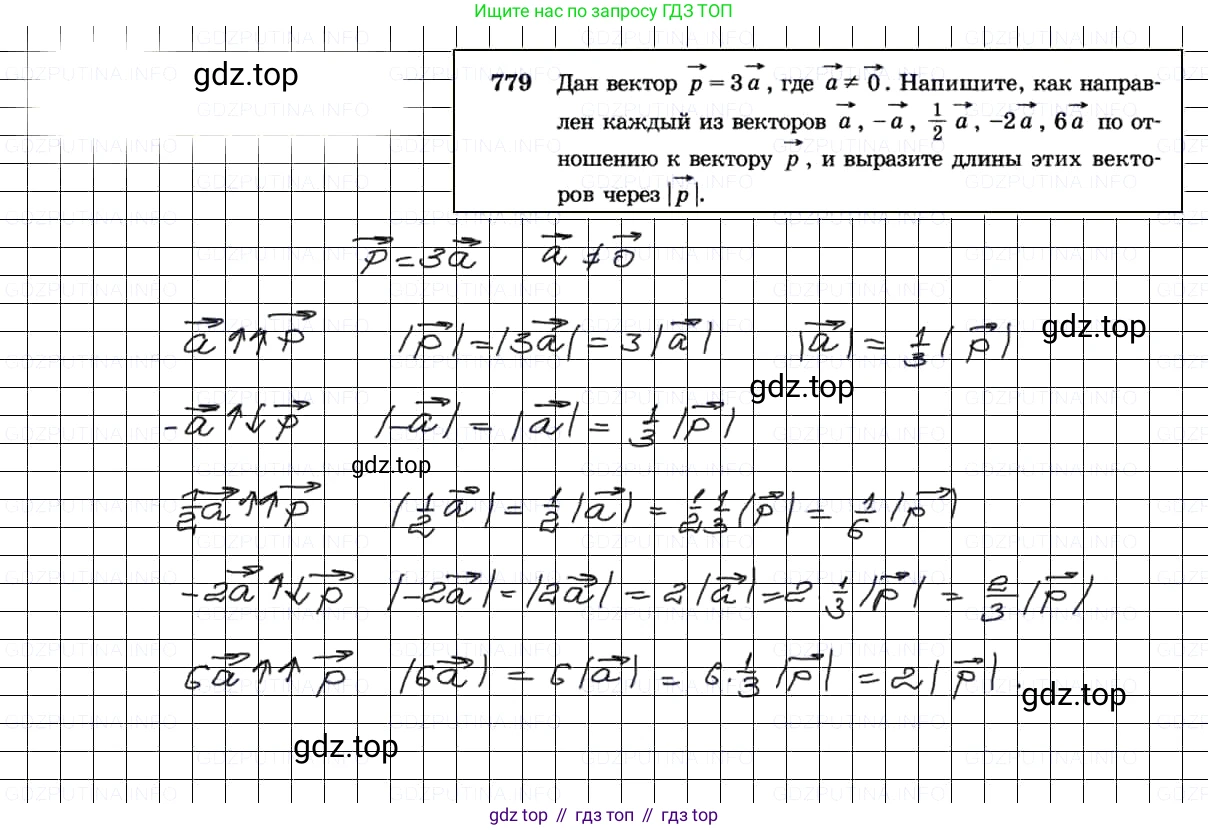 Ищите нас по запросу ГДЗ ТОП
gdz.top
779 Дан вектор p⃗ = 3a⃗, где a⃗ ≠ 0⃗. Напишите, как направ-
лен каждый из векторов a⃗, −a⃗, 1/2 a⃗, −2a⃗, 6a⃗ по от-
ношению к вектору p⃗, и выразите длины этих векто-
ров через |p⃗|.
p⃗ = 3a⃗ a⃗ ≠ 0⃗
a⃗ ↑↑ p⃗ |p⃗| = |3a⃗| = 3|a⃗| |a⃗| = 1/3 |p⃗|
gdz.top
gdz.top
-a⃗ ↑↓ p⃗ |-a⃗| = |a⃗| = 1/3 |p⃗|
gdz.top
1/2 a⃗ ↑↑ p⃗ |1/2 a⃗| = 1/2 |a⃗| = 1/2 1/3 |p⃗| = 1/6 |p⃗|
-2a⃗ ↑↓ p⃗ |-2a⃗| = |2a⃗| = 2|a⃗| = 2 · 1/3 |p⃗| = 2/3 |p⃗|
6a⃗ ↑↑ p⃗ |6a⃗| = 6|a⃗| = 6 · 1/3 |p⃗| = 2|p⃗|.
gdz.top
gdz.top
gdz top // гдз топ // gdz top
GDZPUTINA.INFO